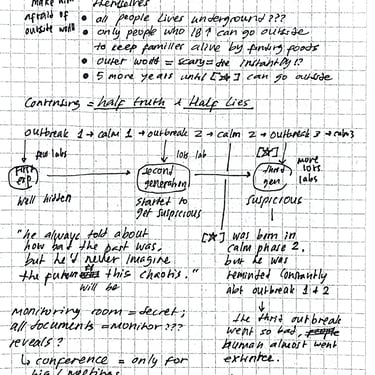 make him themselves
afraid of
outside world
• all people lives underground???
• only people who 18↑ can go outside
to keep families alive by finding foods
• outer world = scary = die instantly!?
• 5 more years until [☆] can go outside
Continuing = half truth & Half Lies
outbreak 1 → calm 1 → outbreak 2 → calm 2 → outbreak 3 → calm 3
few labs
lots lab
[☆]
more
lots
labs
First
exp.
second
generation
third
gen
well hidden
started to
get suspicious
suspicious
"he always told about
how bad the past was,
but he'd never imagine
the future this chaotic."
will be
[☆] was born in
calm phase 2.
but he was
reminded constantly
abt outbreak 1 & 2
monitoring room = secret;
all documents = monitor???
reveals?
↳ conference = only for
big meetings
the third outbreak
went so bad, people
human almost went
extintee.